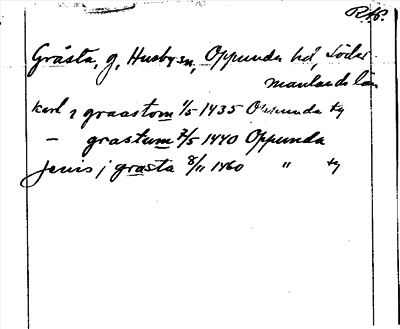 RAP.
Gråsta, g, Husby sn, Oppunda hd, Söder-
manlands län
karl i graastom 1/5 1435 Oppunda tg
— grastum 2/5 1440 Oppunda
jenis i grasta 8/11 1460 " tg